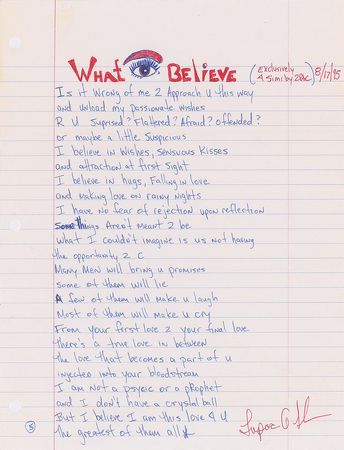 What Believe (Exclusively 4 Simi by 2PAC) 8/17/95
Is it Wrong of me 2 Approach U this way
and unload my passionate wishes
R U Suprised? Flattered? Afraid? Offended?
or maybe a little Suspicious
I believe in Wishes, Sensuous Kisses
and attraction at first sight
I believe in hugs, Falling in love
and making love on rainy nights
I have no fear of rejection upon reflection
Some things Aren't meant 2 be
What I couldn't imagine is us not having
the opportunity 2 C
Many Men will bring u promises
Some of them will lie
A few of them will make u laugh
Most of them will make u cry
From your first love 2 your final love
there's a true love in between
the love that becomes a part of u
injected into your bloodstream
I am not a psycic or a prophet
and I don't have a crystal ball
But I believe I am this love 4 U
the greatest of them all